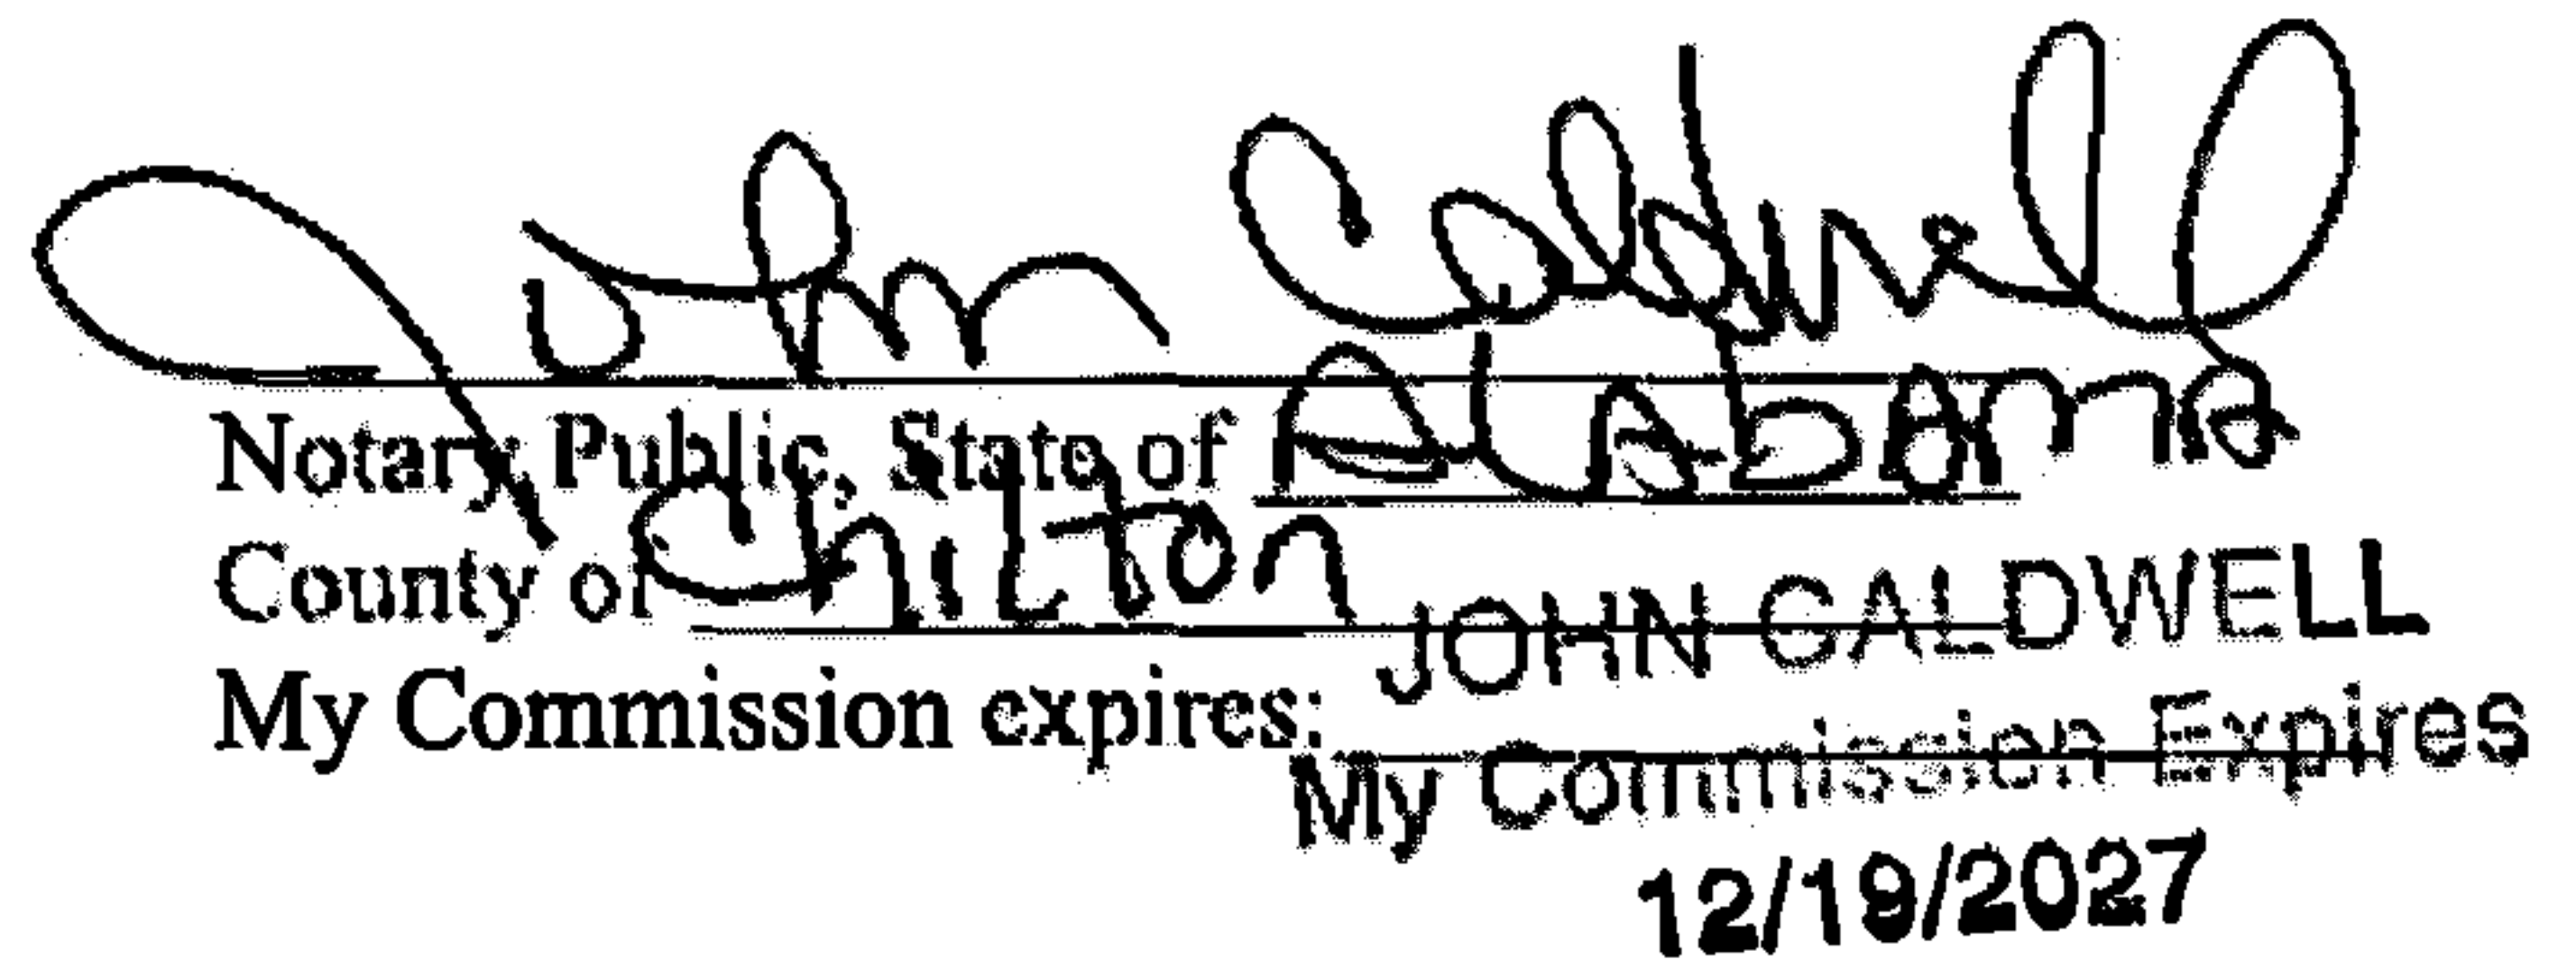 John Caldwell
Notary Public, State of Alabama
County of Chilton
My Commission expires:
JOHN CALDWELL
My Commission Expires
12/19/2027